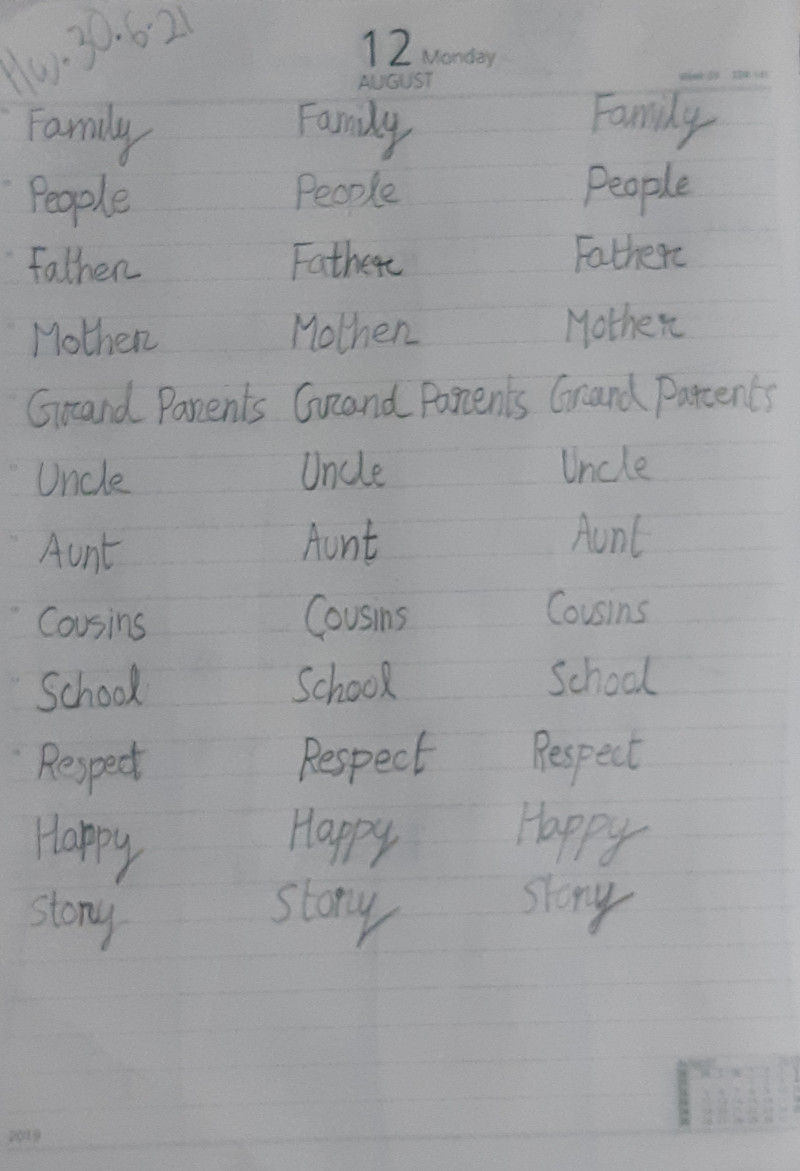 HW. 30.6.21
12 Monday
AUGUST
Family Family Family
People People People
Father Father Father
Mother Mother Mother
Grand Parents Grand Parents Grand Parents
Uncle Uncle Uncle
Aunt Aunt Aunt
Cousins Cousins Cousins
School School School
Respect Respect Respect
Happy Happy Happy
Story Story Story
2019